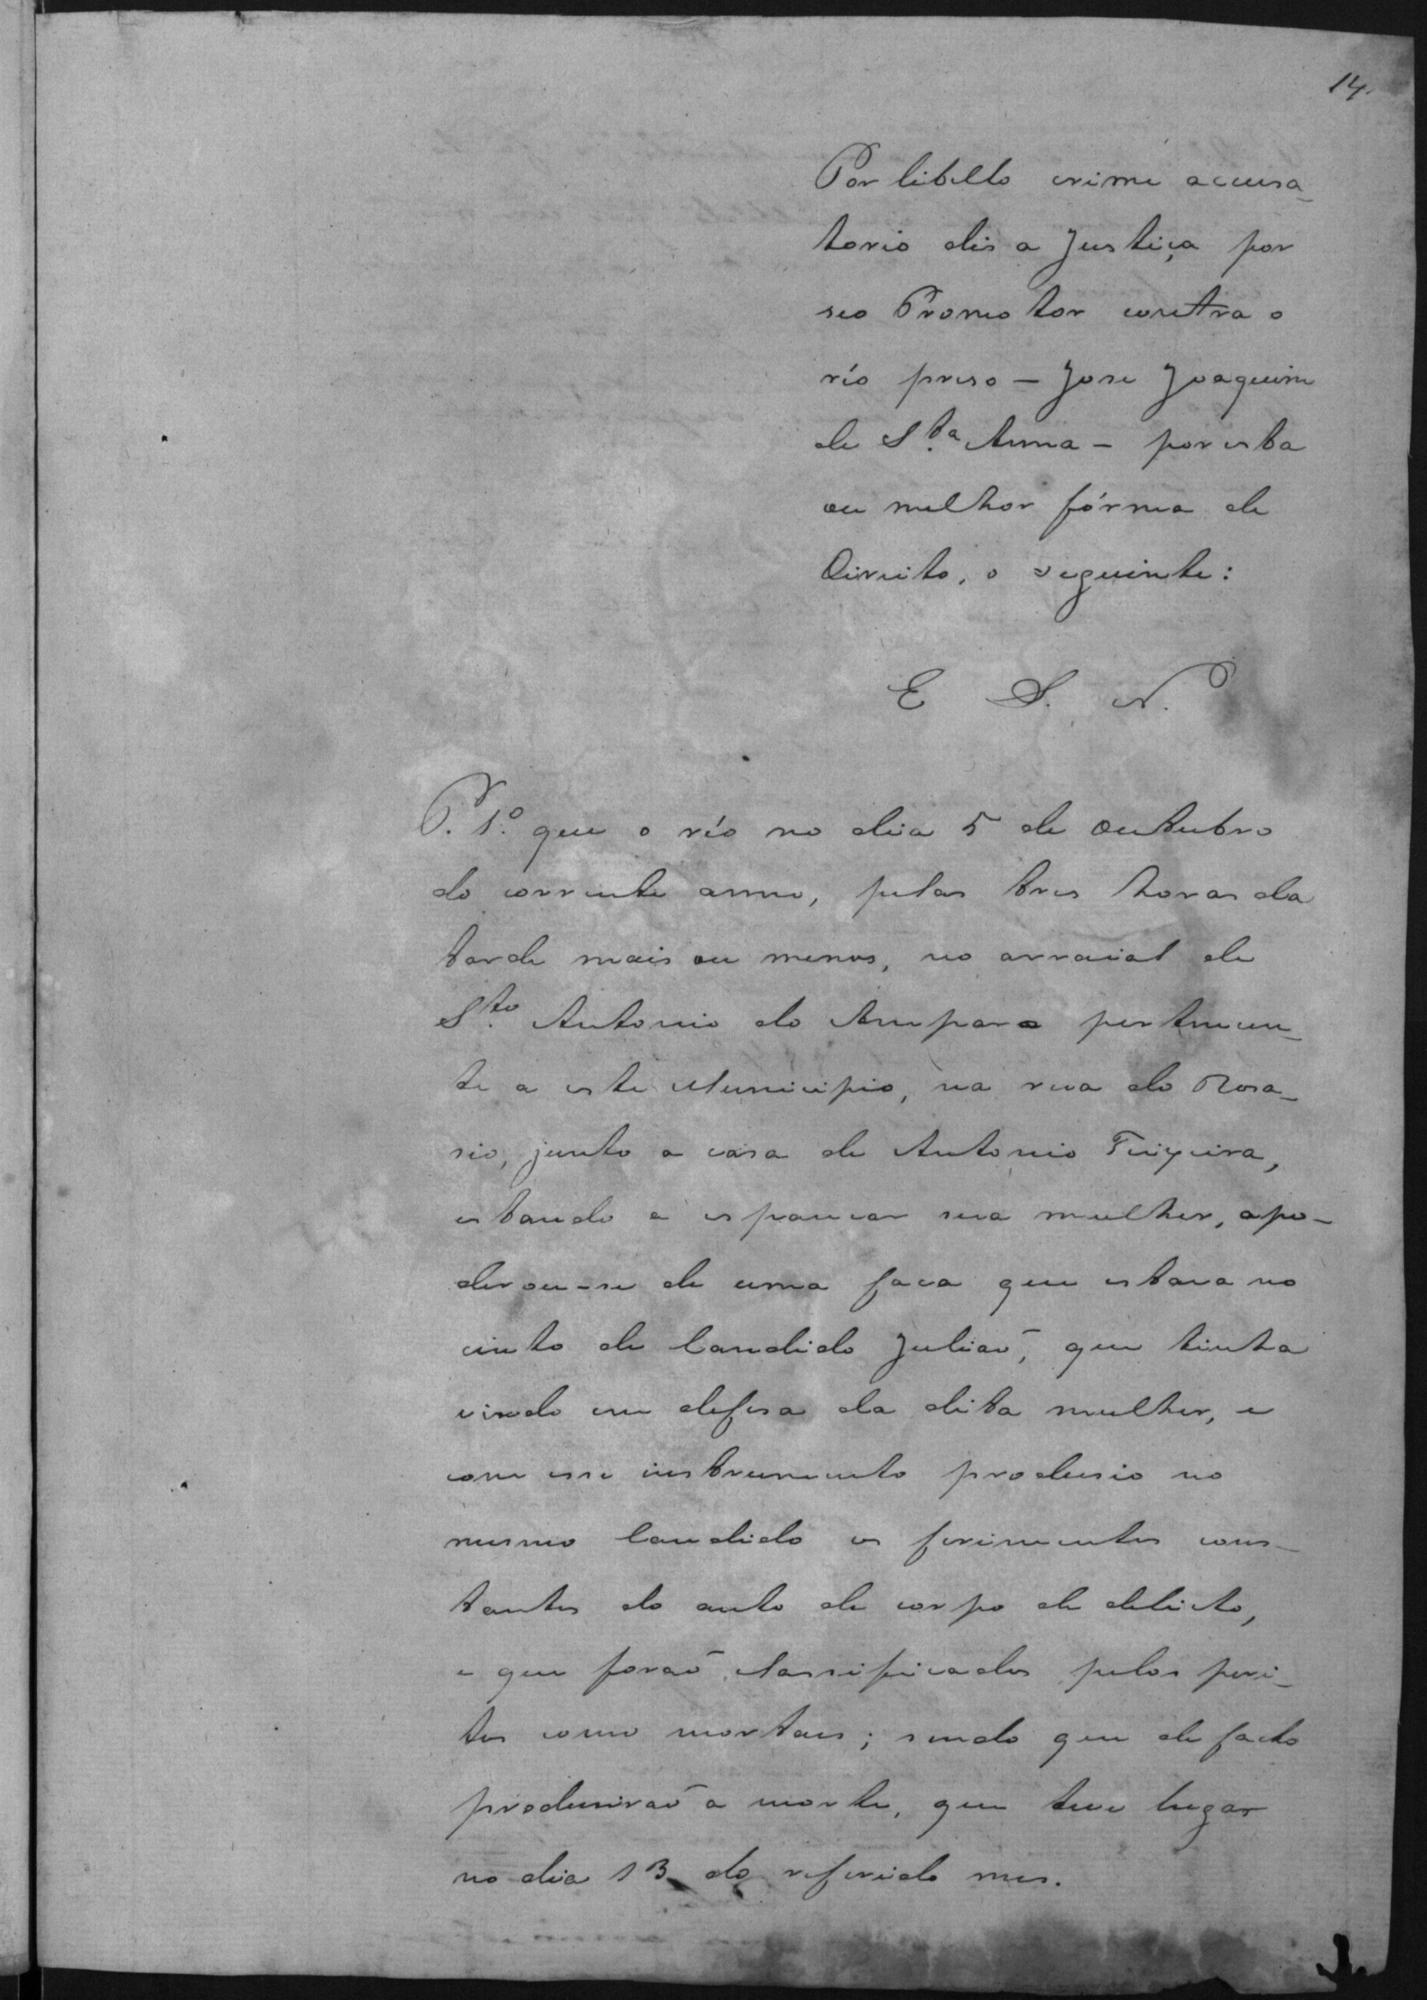 14.
Por libello crime accusa-
torio dis a Justiça por
seo Promotor contra o
réo preso — Jose Joaquim
de S.ta Anna — por esta
ou melhor fórma de
Direito, o seguinte:
E S. N.
P. 1.º que o réo no dia 5 de Outubro
do corrente anno, pelas tres horas da
tarde mais ou menos, no arraial de
S.to Antonio do Amparo pertencen-
te a este Municipio, na rua do Rosa-
rio, junto a casa de Antonio Teixeira,
estando a espancar sua mulher, apo-
derou-se de uma faca que estava no
cinto de Candido Julião, que tinha
vindo em defesa da dita mulher, e
com esse instrumento produsio no
mesmo Candido os ferimentos cons-
tantes do auto de corpo de delicto,
e que forão classificados pelos peri-
tos como mortaes; sendo que de facto
produsirão a morte, que teve lugar
no dia 13 do referido mes.